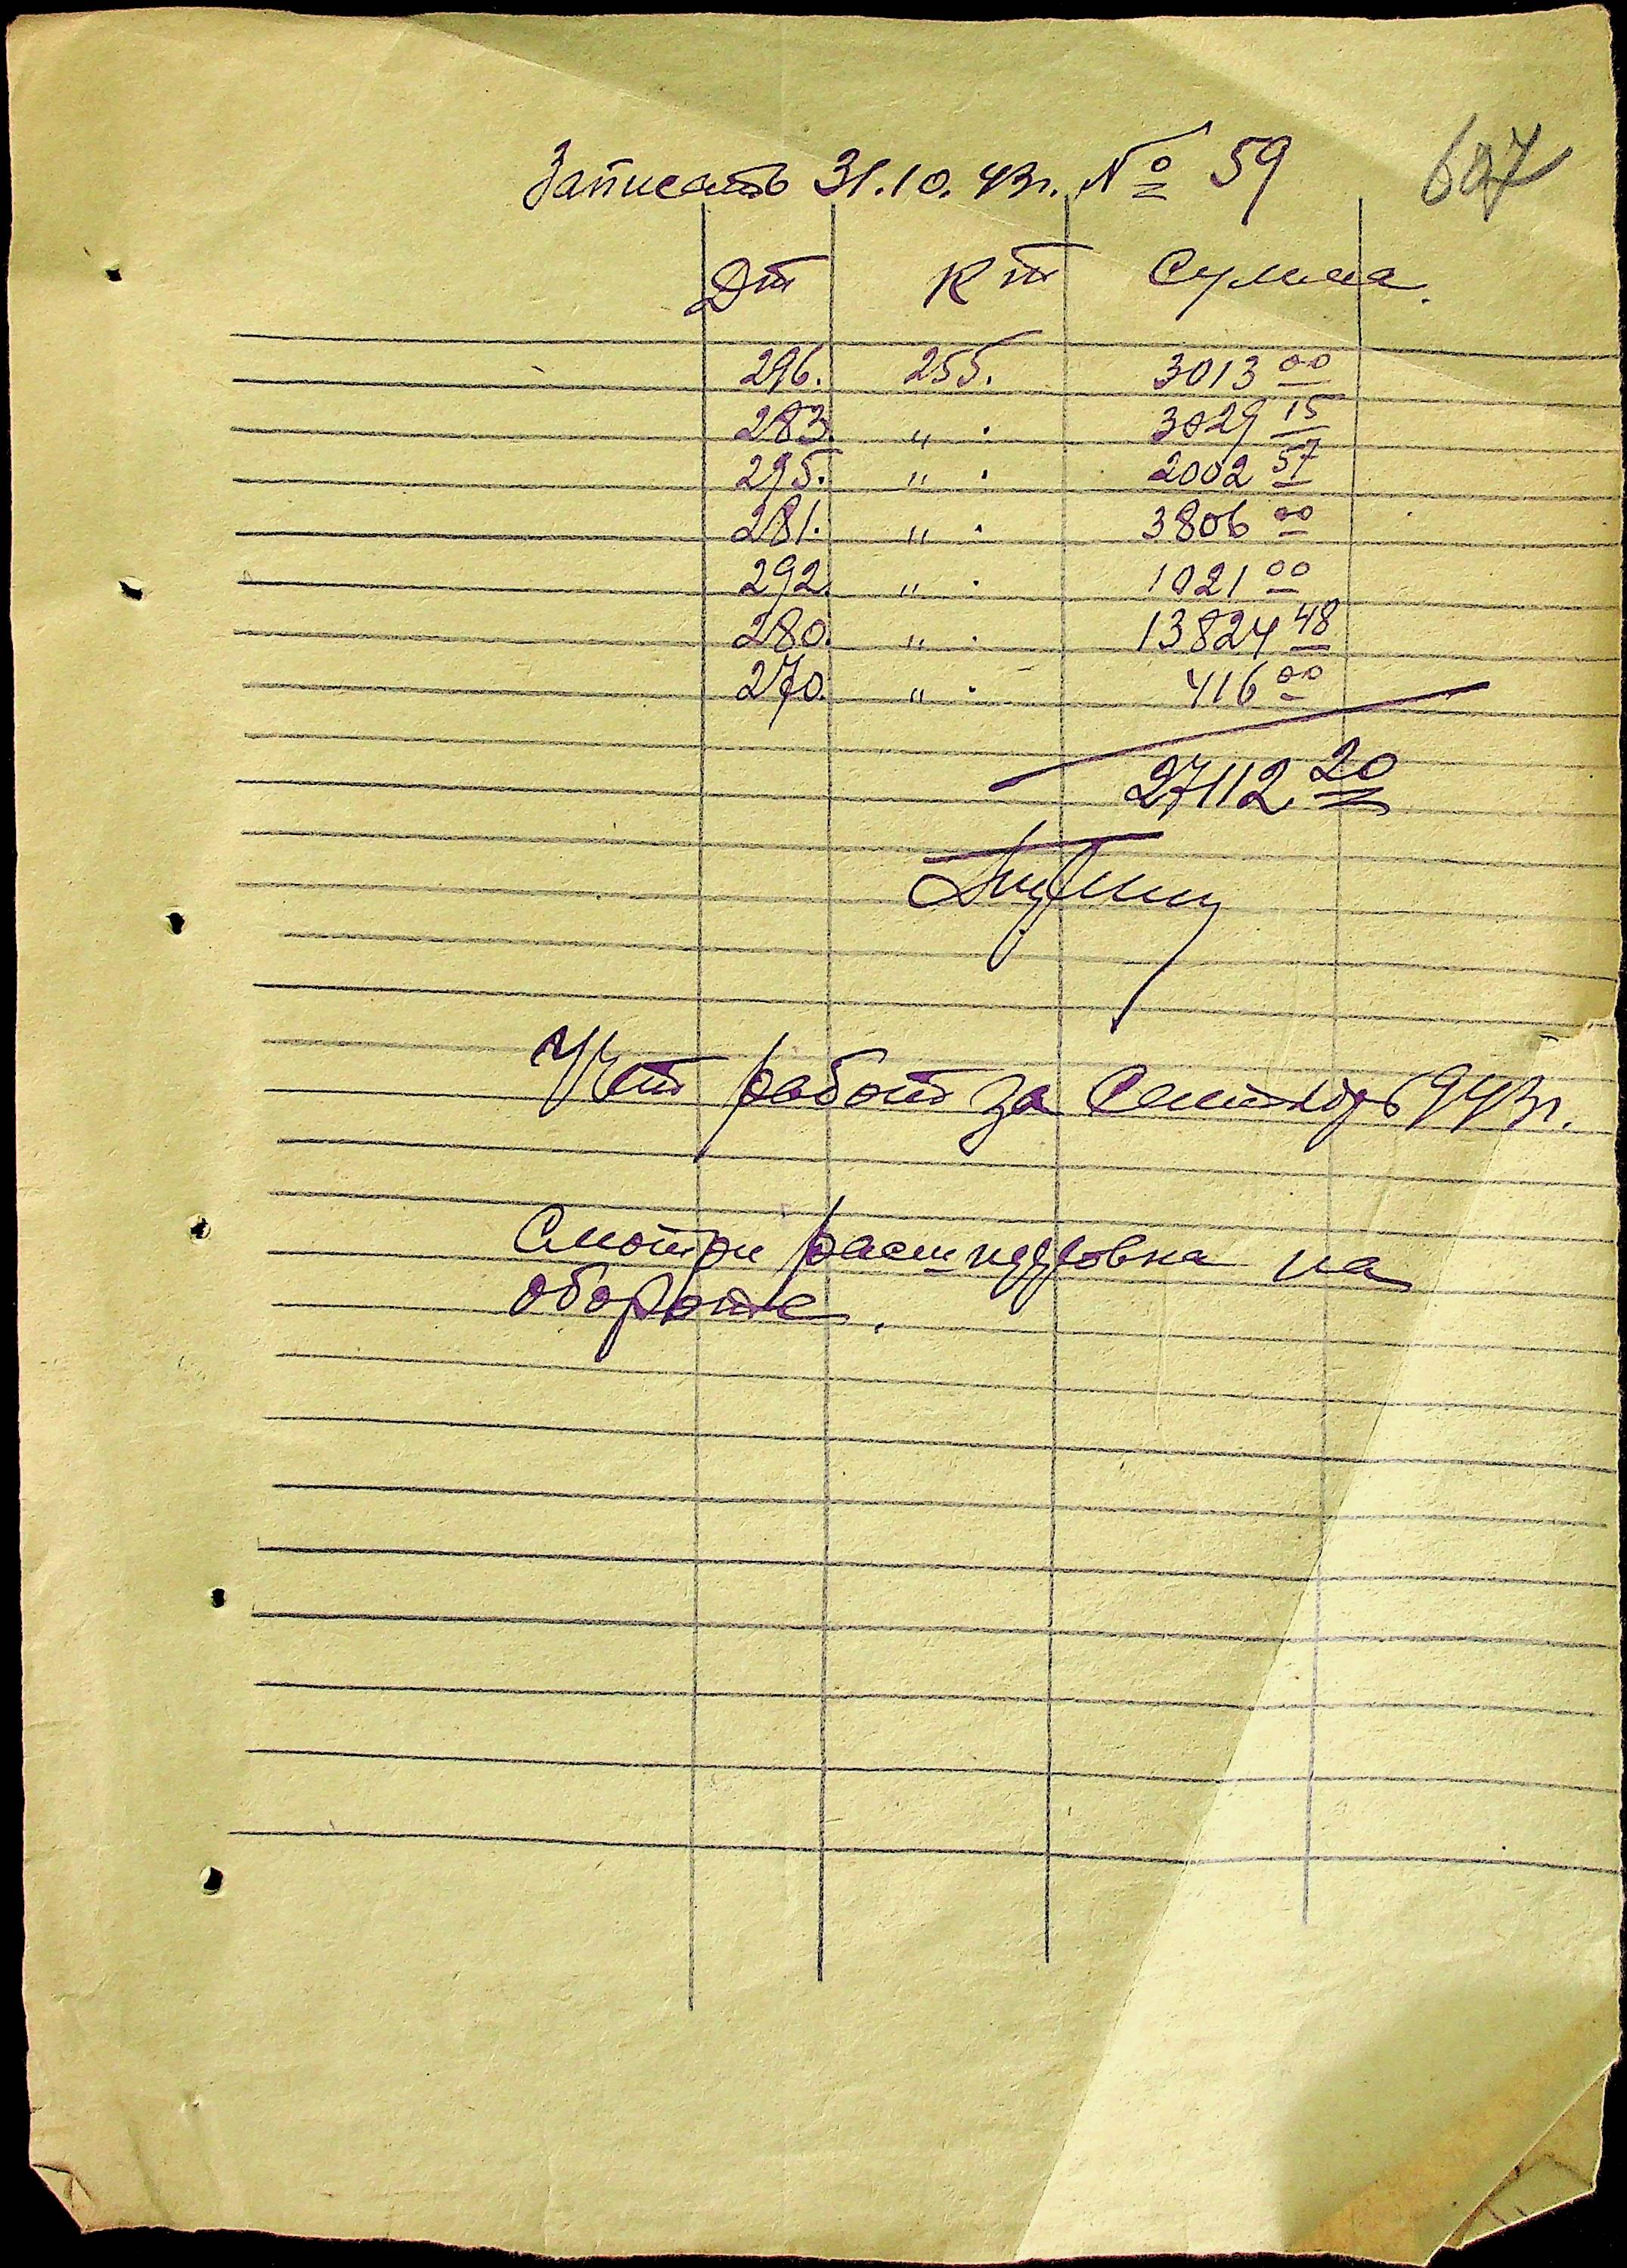 Записать 31.10.43г. № 59
Дт Кт Сумма.
296. 255. 3013 00
283. " . 3029 15
295. " . 2002 57
281. " . 3806 00
292. " . 1021 00
280. " . 13824 48
270. " . 416 00
27112 20
Учет работ за Сентябрь 1943г.
Смотри расшифровка на
обороте.